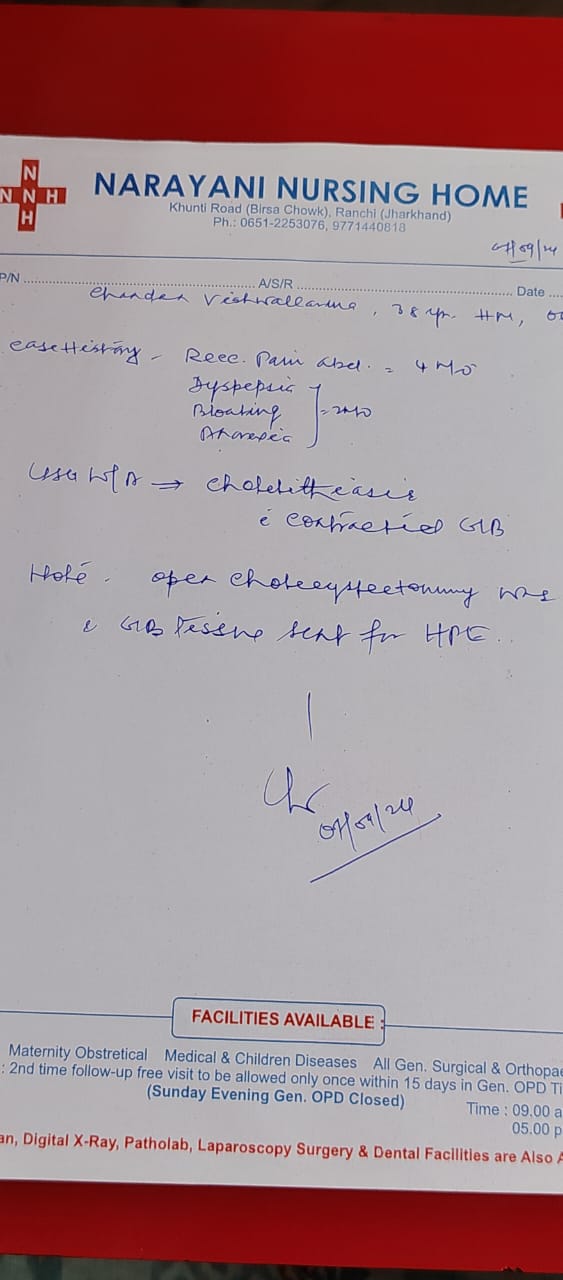 N
N N H
H
NARAYANI NURSING HOME
Khunti Road (Birsa Chowk), Ranchi (Jharkhand)
Ph.: 0651-2253076, 9771440818
/09/24
P/N ........ A/S/R ........ Date ....
Chandan Vishwakarma, 38 yr. HM,
Case History - Recc. Pain abd. = 4 Mo
Dyspepsia
Bloating = 2Mo
Anorexia
USG W/A → Cholelithiasis
c̄ contracted GB
Note. open cholecystectomy was
& GB Tissue sent for HPE..
/09/24
FACILITIES AVAILABLE :
Maternity Obstretical Medical & Children Diseases All Gen. Surgical & Orthopae
: 2nd time follow-up free visit to be allowed only once within 15 days in Gen. OPD Ti
(Sunday Evening Gen. OPD Closed)
Time : 09.00 a
05.00 p
an, Digital X-Ray, Patholab, Laparoscopy Surgery & Dental Facilities are Also A